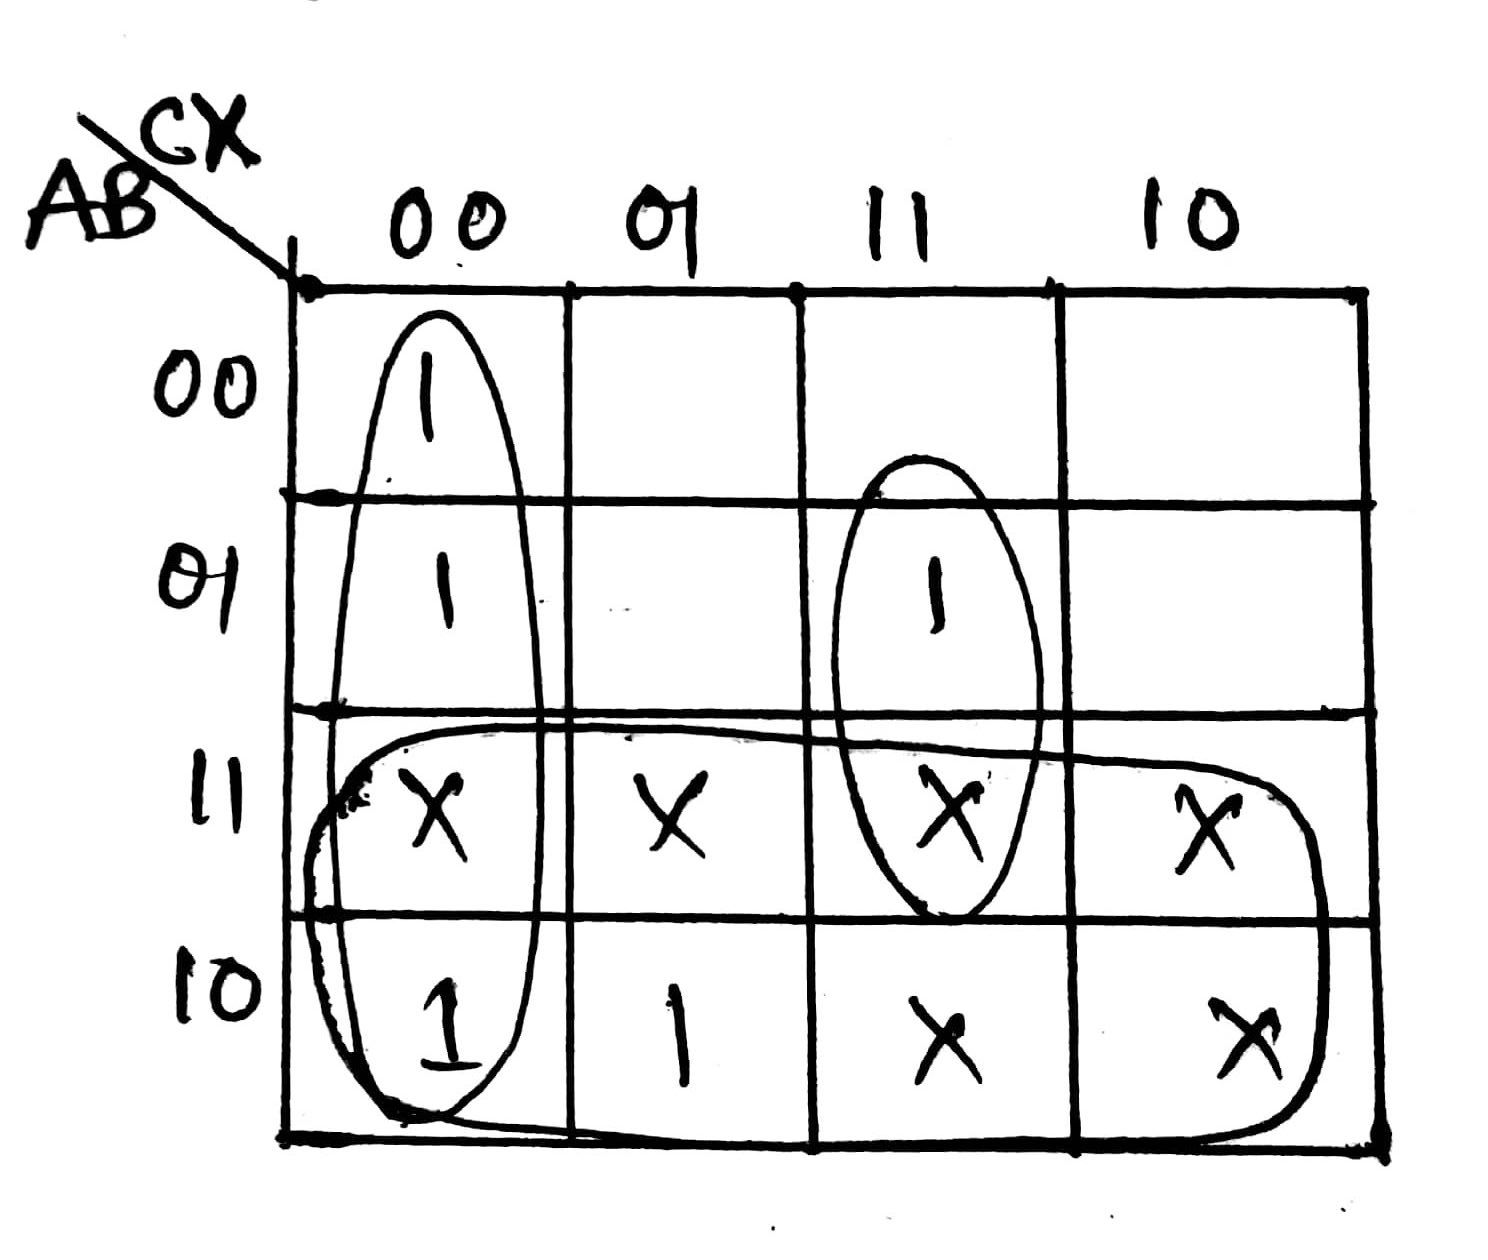 CX
AB
00 01 11 10
00 1
01 1 1
11 X X X X
10 1 1 X X